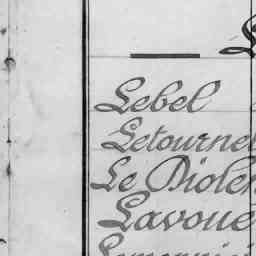 L
Lebel
Letournel
Le Diolen
Lavoue